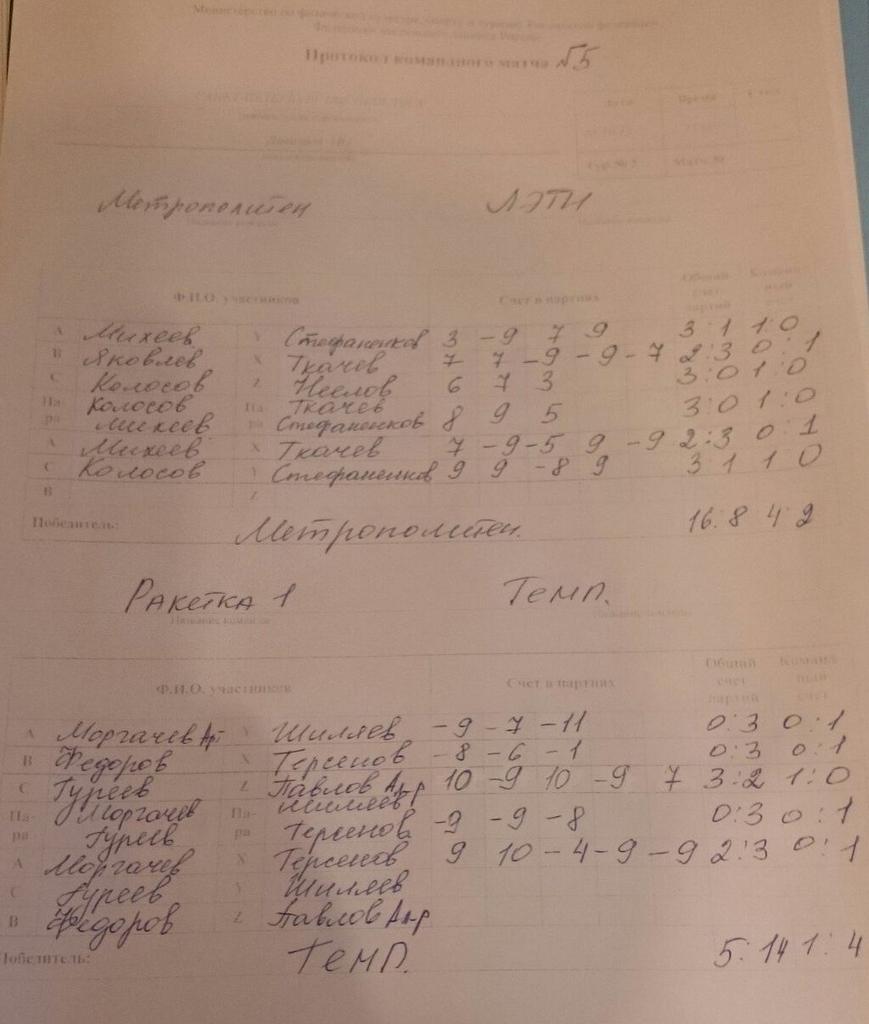 Министерство по физической культуре, спорту и туризму Российской федерации
Федерация настольного тенниса России
Протокол командного матча №5
Дата Время
Тур № 2 Матч №
Метрополитен ЛЭТИ
Ф.И.О. участников Счет в партиях Общий счет партий Командный счет
A Михеев Y Стефаненков 3 -9 7 9 3:1 1:0
B Яковлев X Ткачев 7 7 -9 -9 -7 2:3 0:1
C Колосов Z Неелов 6 7 3 3:0 1:0
Па- Колосов Па- Ткачев
ра Михеев ра Стефаненков 8 9 5 3:0 1:0
A Михеев X Ткачев 7 -9 -5 9 -9 2:3 0:1
C Колосов Y Стефаненков 9 9 -8 9 3 1 1 0
B Z
Победитель: Метрополитен. 16:8 4:2
Ракетка 1 Темп.
Название команды Название команды
Ф.И.О. участников Счет в партиях Общий счет партий Командный счет
A Моргачев Арт Y Шиляев -9 -7 -11 0:3 0:1
B Федоров X Терсенов -8 -6 -1 0:3 0:1
C Гуреев Z Павлов Ал-р 10 -9 10 -9 7 3:2 1:0
Па- Моргачев Па- Шиляев
ра Гуреев ра Терсенов -9 -9 -8 0:3 0:1
A Моргачев X Терсенов 9 10 -4 -9 -9 2:3 0:1
C Гуреев Y Шиляев
B Федоров Z Павлов Ал-р
Победитель: Темп. 5:14 1:4